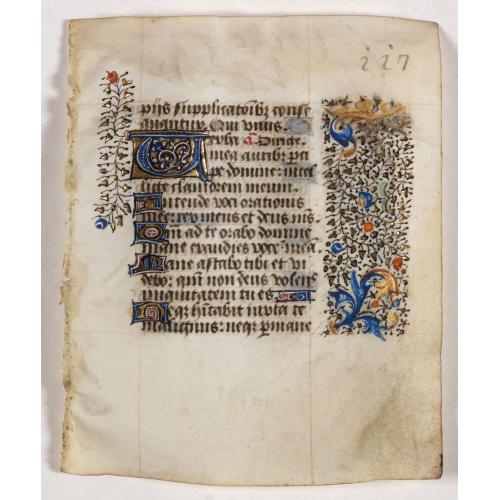 227
piis supplicatōibz consf
quantur. Qui viuis
erba a. Dirige
mea auribz pa
pe domine: intel
lige clamorem meum.
Intende voci orationis
mee rex meus et deus ms.
m ad te orabo domine
mane exaudies vocē mea
Mane astabo tibi et vi
debo: qm̄ non deus volens
iniquitatem tu es
Neqz hītabit iuxta te
malignus: neqz pmane